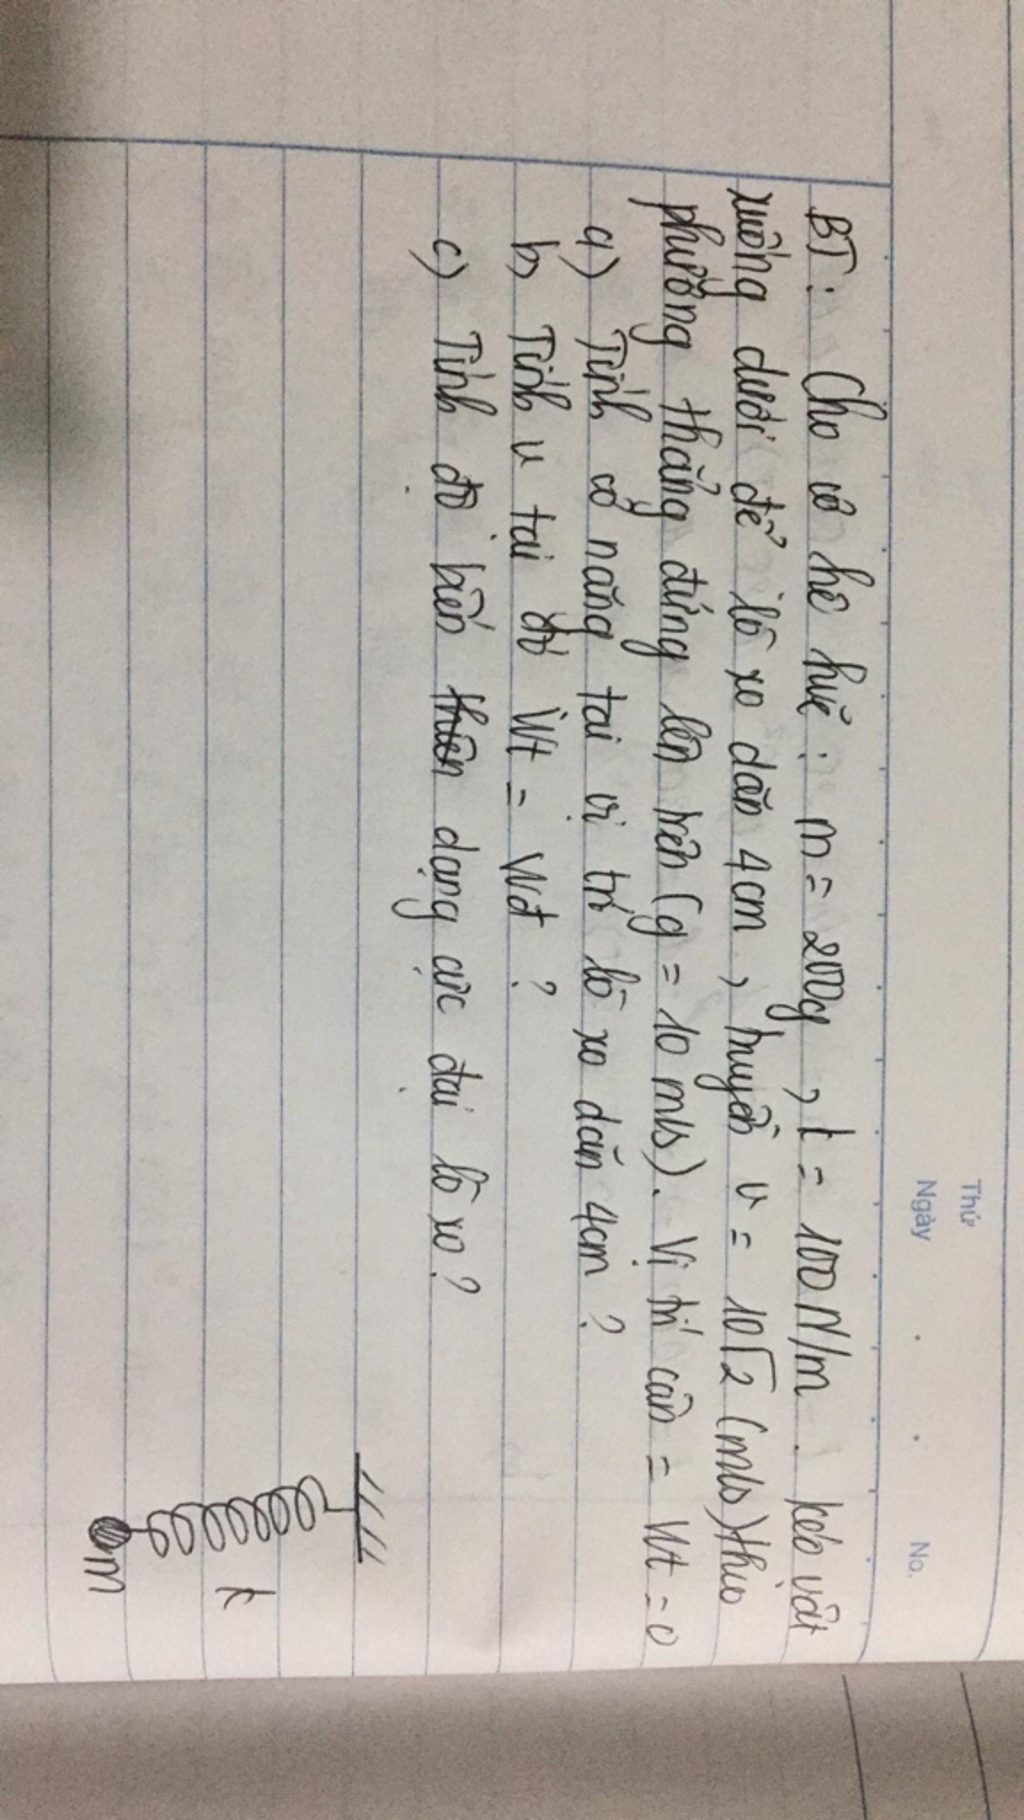 Thứ
Ngày . . No.
BT : Cho cơ hệ hvẽ : m = 200g , k = 100N/m . kéo vật
xuống dưới để lò xo dãn 4cm , truyền v = 10√2 (m/s) theo
phương thẳng đứng lên trên (g = 10 m/s). Vị trí cân = Wt = 0
a) Tính cơ năng tại vị trí lò xo dãn 4cm ?
b) Tính v tại đó Wt = Wđ ?
c) Tính độ biến dạng cực đại lò xo ?
k
m